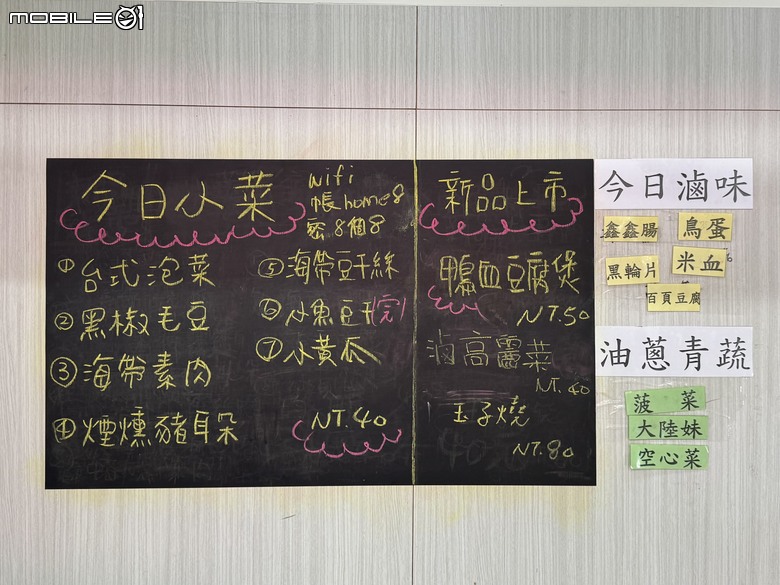 MOBILE01
今日小菜
wifi
帳home8
密8個8
①台式泡菜
②黑椒毛豆
③海帶素肉
④煙燻豬耳朵
⑤海帶豆干絲
⑥小魚豆干(完)
⑦小黃瓜
NT.40
新品上市
鴨血豆腐煲
NT.50
滷高麗菜
NT.40
玉子燒
NT.80
今日滷味
鑫鑫腸
鳥蛋
黑輪片
米血
百頁豆腐
油蔥青蔬
菠菜
大陸妹
空心菜